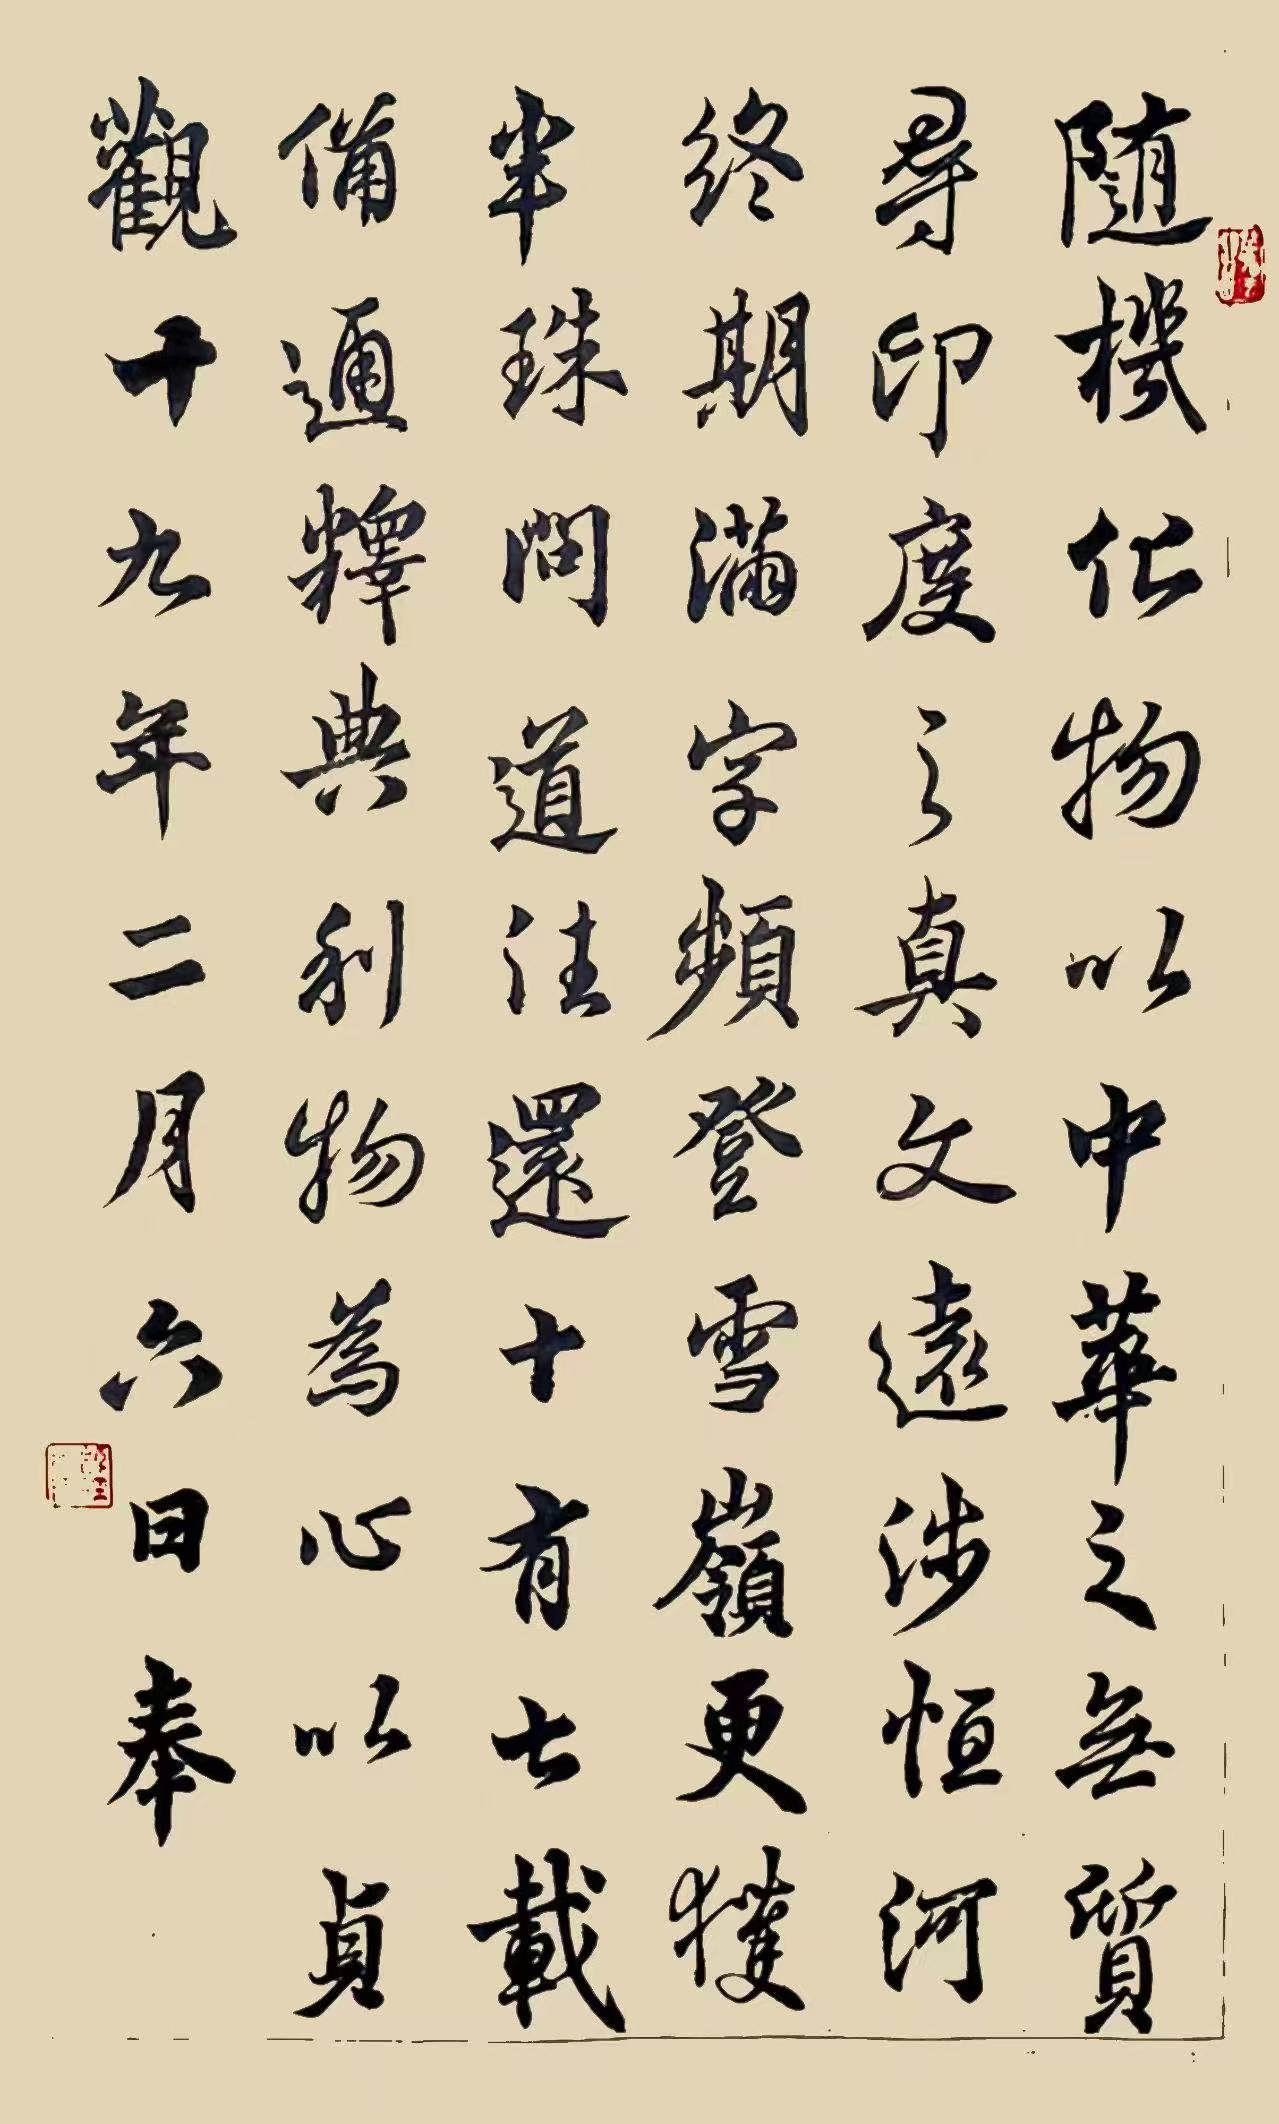 隨機化物以中華之無質
尋印度之真文遠涉恒河
終期滿字頻登雪嶺更獲
半珠問道法還十有七載
備通釋典利物為心以貞
觀十九年二月六日奉